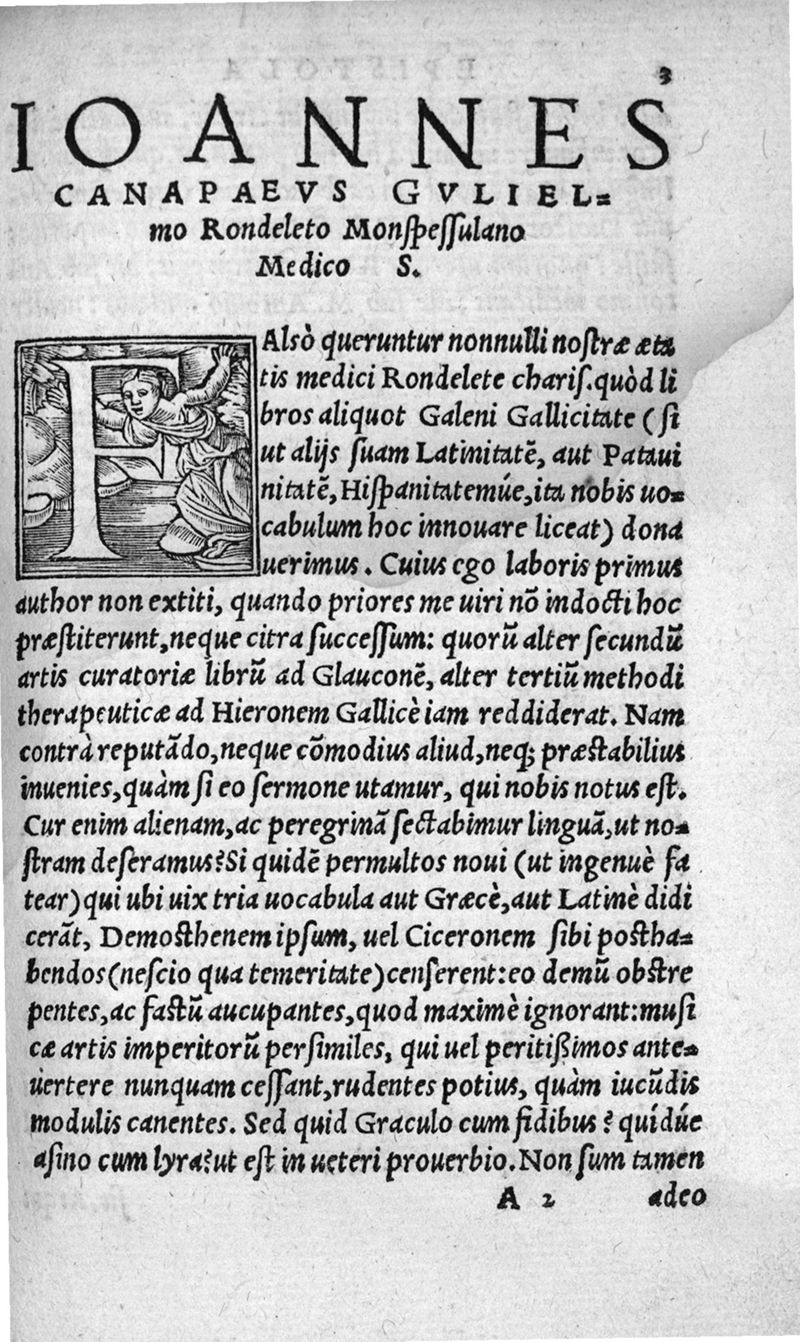 3
IOANNES
CANAPAEVS GVLIEL-
mo Rondeleto Monſpeſſulano
Medico S.
FAlsò queruntur nonnulli noſtræ æta
tis medici Rondelete chariſ. quòd li
bros aliquot Galeni Gallicitate (ſi
ut alijs ſuam Latinitatē, aut Pataui
nitatē, Hiſpanitatemúe, ita nobis uo-
cabulum hoc innouare liceat) dona
uerimus. Cuius ego laboris primus
author non extiti, quando priores me uiri nō indocti hoc
præſtiterunt, neque citra ſucceſſum: quorū alter ſecundū
artis curatoriæ librū ad Glauconē, alter tertiū methodi
therapeuticæ ad Hieronem Gallicè iam reddiderat. Nam
contrà reputādo, neque cōmodius aliud, neq; præstabilius
inuenies, quàm ſi eo ſermone utamur, qui nobis notus eſt.
Cur enim alienam, ac peregrinā ſectabimur linguā, ut no-
ſtram deſeramus? Si quidē permultos noui (ut ingenuè fa
tear) qui ubi uix tria uocabula aut Græcè, aut Latinè didi
cerāt, Demosthenem ipſum, uel Ciceronem ſibi postha-
bendos (neſcio qua temeritate) cenſerent: eo demū obstre
pentes, ac fastū aucupantes, quod maximè ignorant: muſi
cæ artis imperitorū perſimiles, qui uel peritißimos ante-
uertere nunquam ceſſant, rudentes potius, quàm iucūdis
modulis canentes. Sed quid Graculo cum fidibus? quidúe
aſino cum lyra? ut eſt in ueteri prouerbio. Non ſum tamen
A 2 adeo